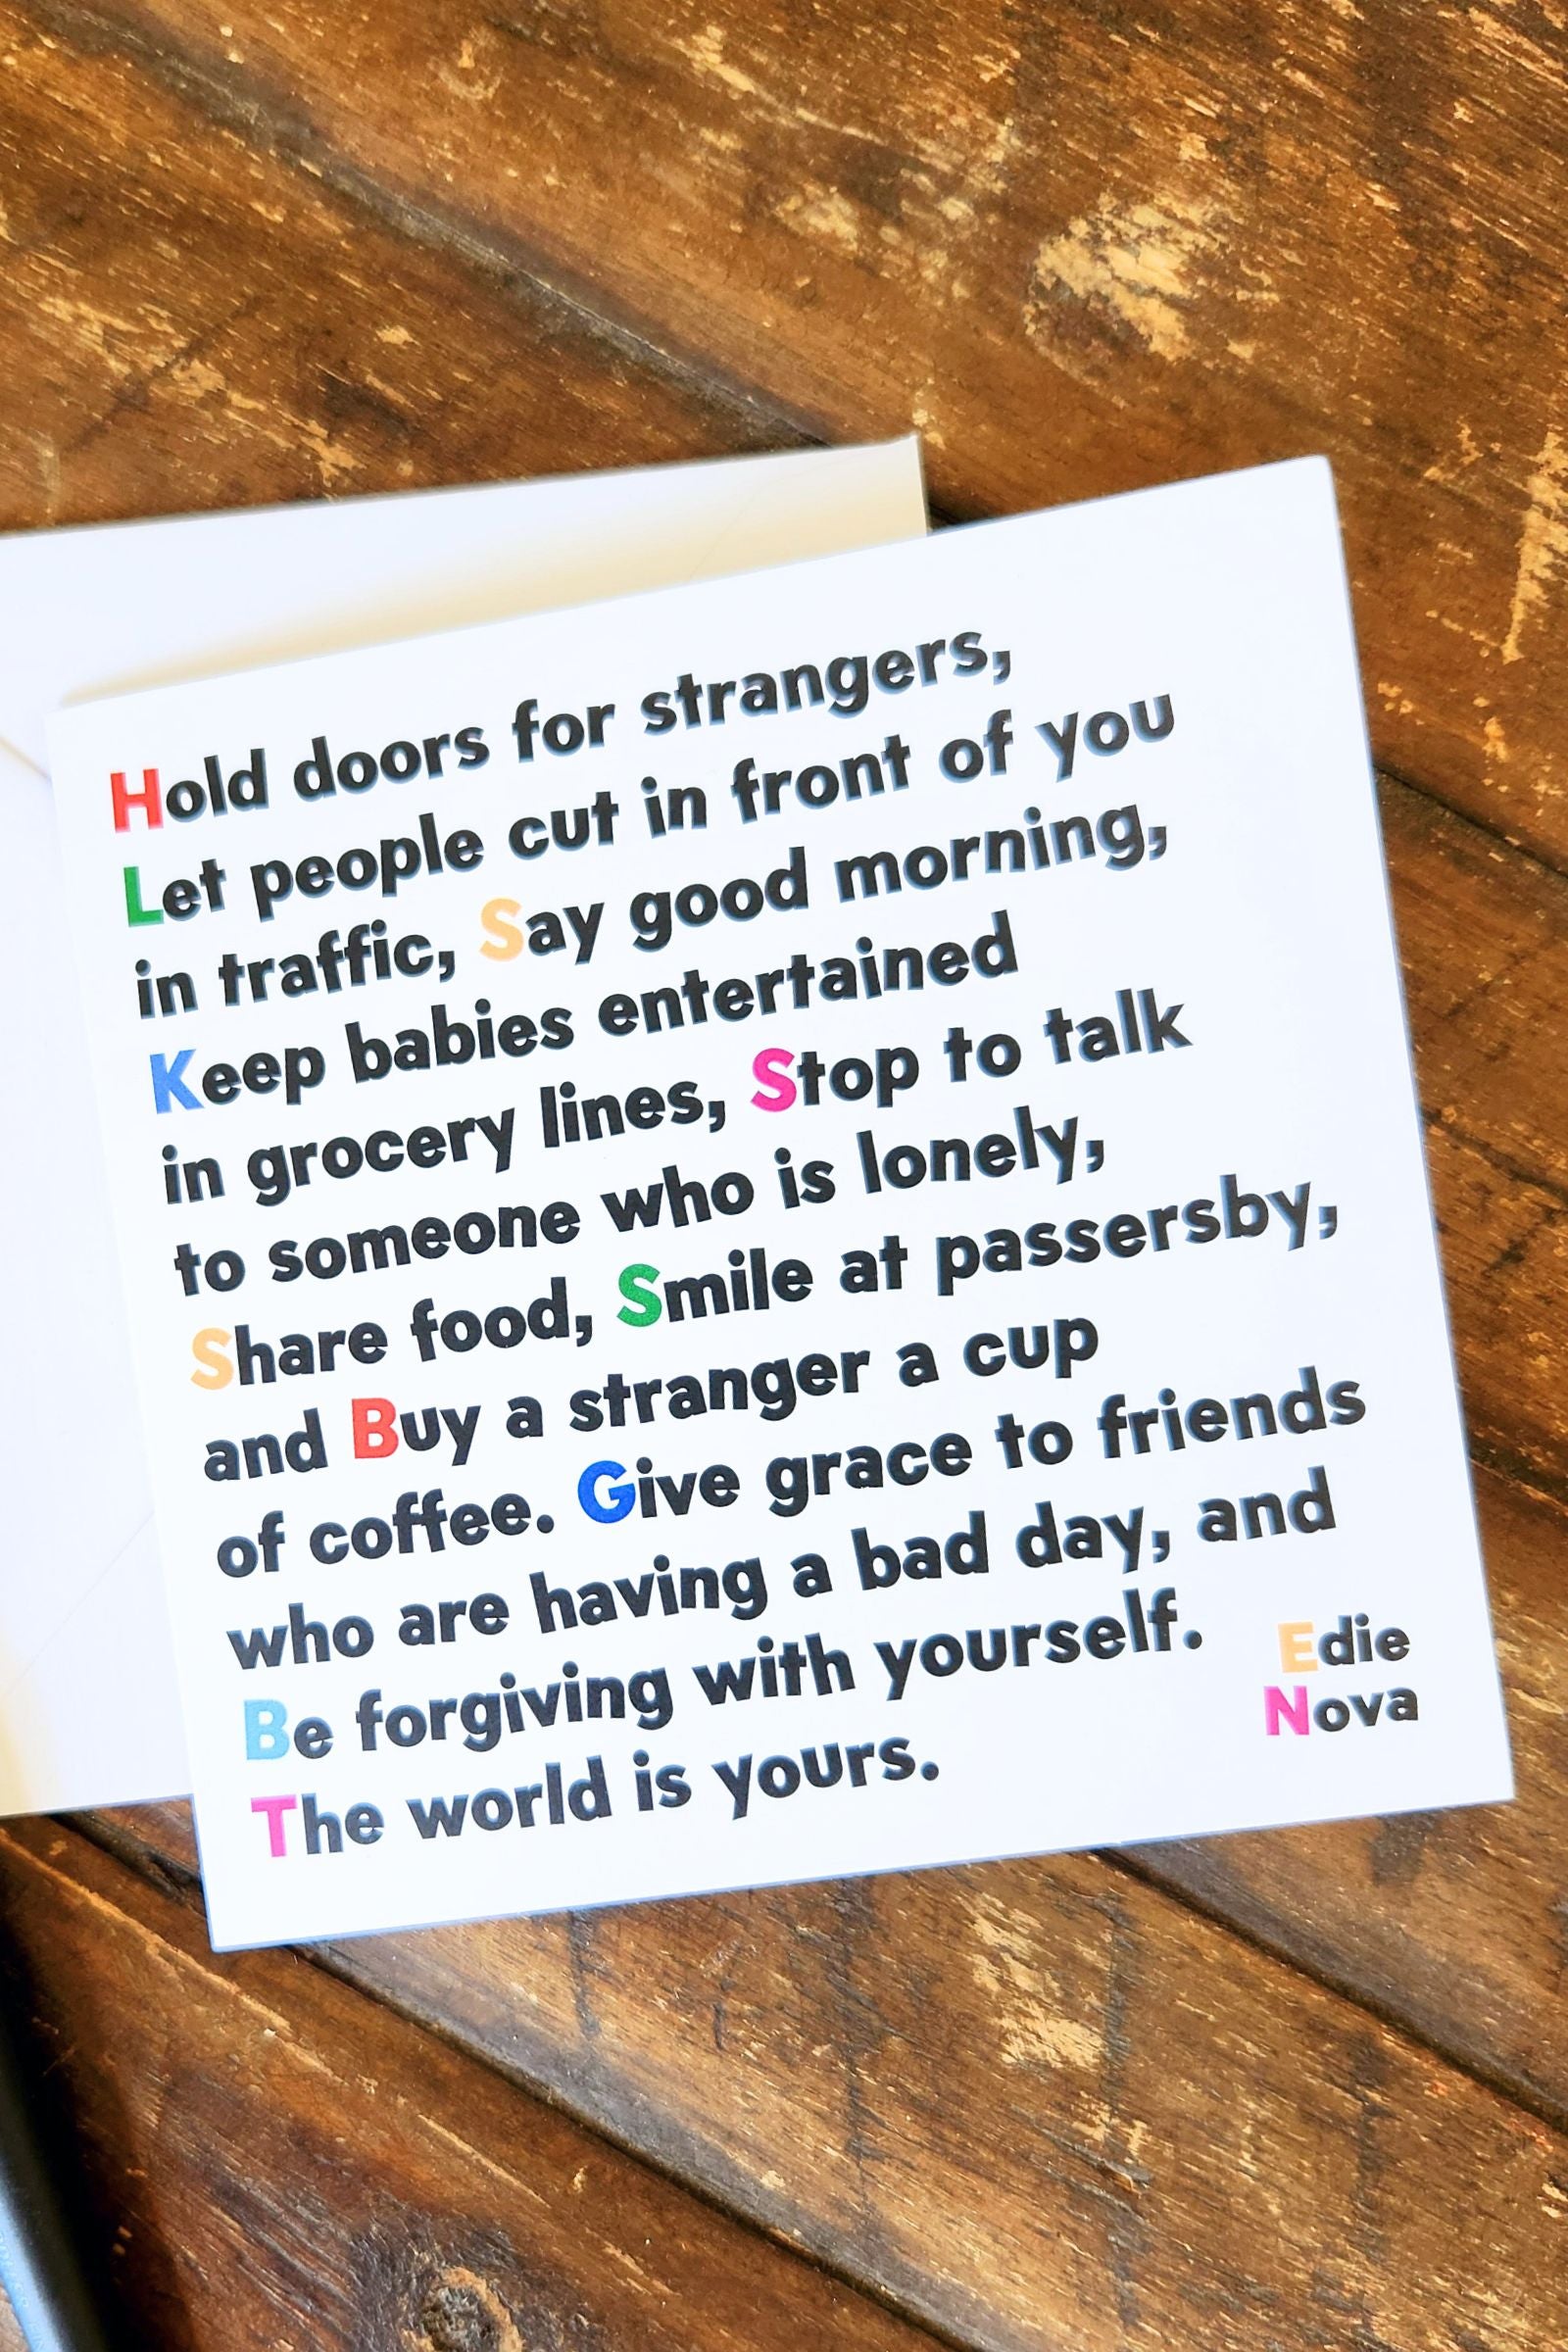 Hold doors for strangers,
Let people cut in front of you
in traffic, Say good morning,
Keep babies entertained
in grocery lines, Stop to talk
to someone who is lonely,
Share food, Smile at passersby,
and Buy a stranger a cup
of coffee. Give grace to friends
who are having a bad day, and
Be forgiving with yourself.
The world is yours.
Edie
Nova